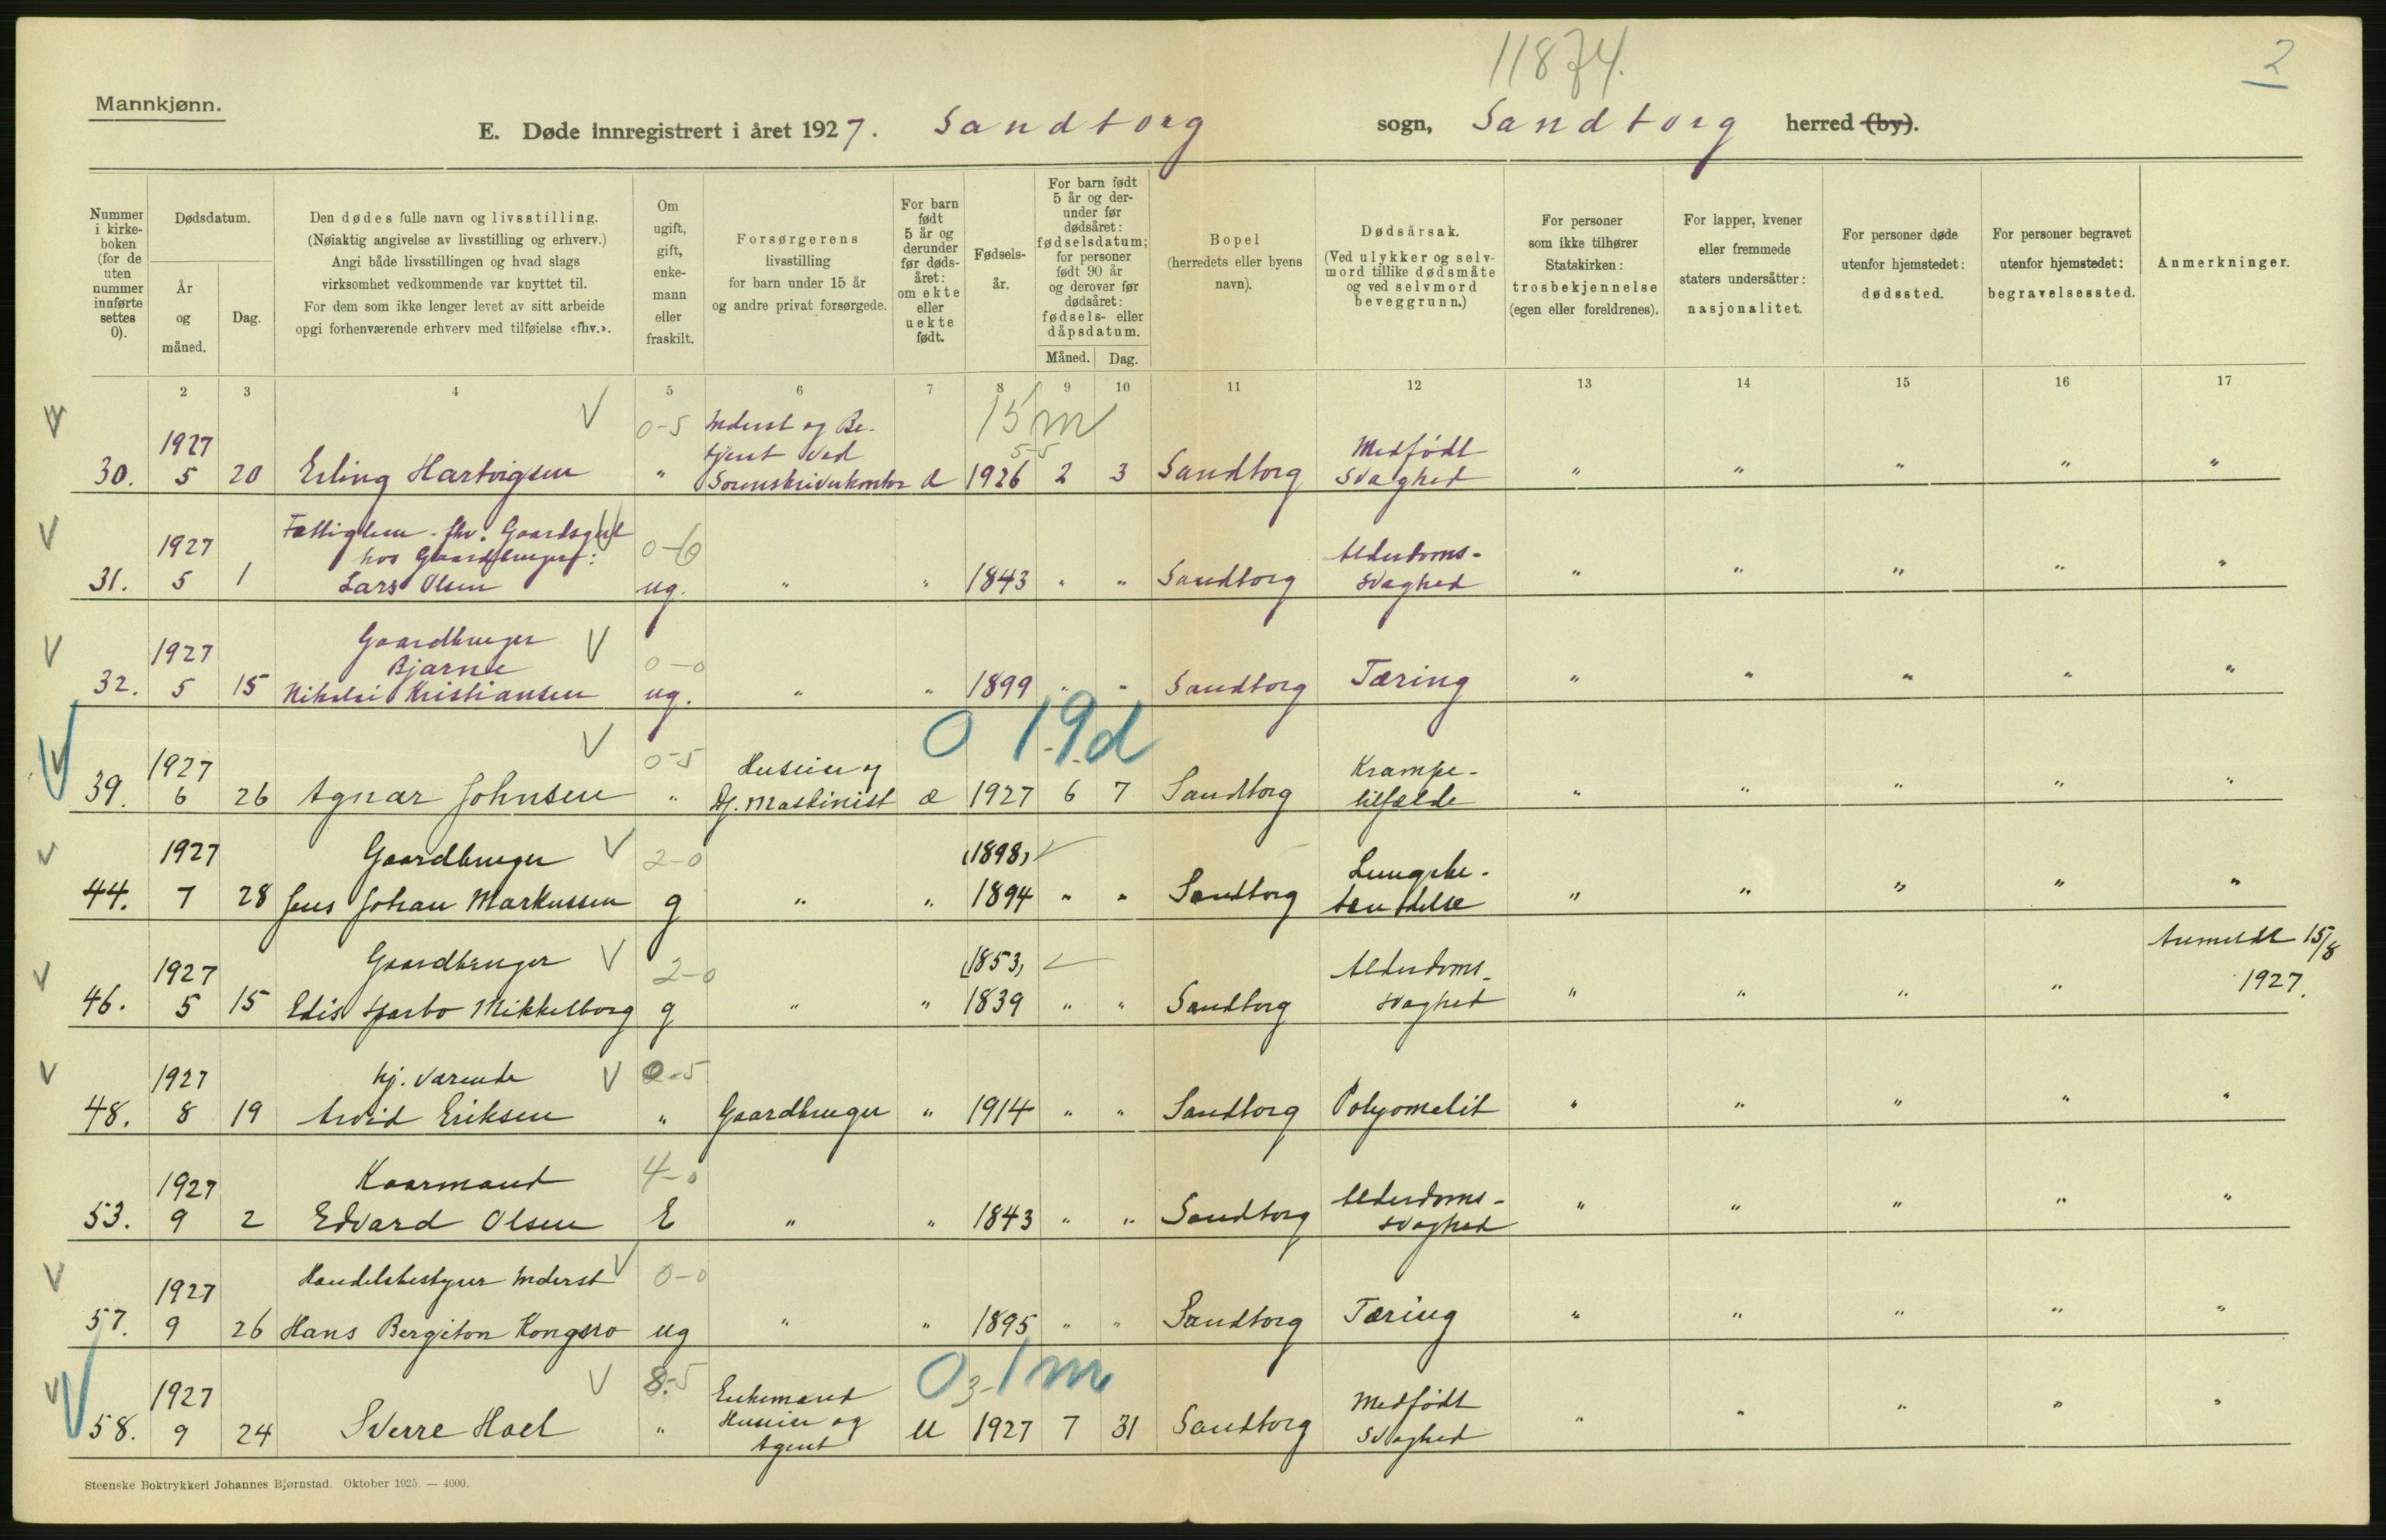 11874.
2
Mannkjønn.
E. Døde innregistrert i året 1927. Sandtorg sogn, Sandtorg herred (by).
Nummer i kirke-boken (for de uten nummer innførte settes 0).
Dødsdatum.
År og måned.
Dag.
Den dødes fulle navn og livsstilling.
(Nøiaktig angivelse av livsstilling og erhverv.)
Angi både livsstillingen og hvad slags
virksomhet vedkommende var knyttet til.
For dem som ikke lenger levet av sitt arbeide
opgi forhenværende erhverv med tilføielse «fhv.».
Om ugift, gift, enke-mann eller fraskilt.
Forsørgerens
livsstilling
for barn under 15 år
og andre privat forsørgede.
For barn født 5 år og derunder før døds-året: om ekte eller uekte født.
Fødsels-år.
For barn født 5 år og der-under før dødsåret: fødselsdatum; for personer født 90 år og derover før dødsåret: fødsels- eller dåpsdatum.
Måned. Dag.
Bopel
(herredets eller byens
navn).
Dødsårsak.
(Ved ulykker og selv-
mord tillike dødsmåte
og ved selvmord
beveggrunn.)
For personer
som ikke tilhører
Statskirken:
trosbekjennelse
(egen eller foreldrenes).
For lapper, kvener
eller fremmede
staters undersåtter:
nasjonalitet.
For personer døde
utenfor hjemstedet:
dødssted.
For personer begravet
utenfor hjemstedet:
begravelsessted.
Anmerkninger.
2 3 4 5 6 7 8 9 10 11 12 13 14 15 16 17
0-5 Inderst og Be- 15 m
1927 tjent ved 5-5 Medfødt
30. 5 20 Erling Hartvigsen " Sorenskriverkontor æ 1926 2 3 Sandtorg Svaghed " " " " "
Fattiglem - fhv. Gaardsgut
1927 hos Gaardbruger: 0-6 Alderdoms-
31. 5 1 Lars Olsen ug. " " 1843 " " Sandtorg svaghed " " " " "
Gaardbruger
1927 Bjarne 0-0
32. 5 15 Nikolai Kristiansen ug. " " 1899 " " Sandtorg Tæring " " " " "
0 19d
1927 0-5 Huseier og Krampe-
39. 6 26 Agnar Johnsen " Maskinist æ 1927 6 7 Sandtorg tilfælde " " " " "
1927 Gaardbruger 2-0 (1898) Lungebe-
44. 7 28 Jens Johan Markussen g " " 1894 " " Sandtorg tændelse " " " " "
Anmeldt 15/8
1927 Gaardbruger 2-0 (1853) Alderdoms-
46. 5 15 Edis Sparbo Mikkelborg g " " 1839 " " Sandtorg svaghed " " " " 1927.
1927 hj. værende 0-5
48. 8 19 Arvid Eriksen " Gaardbruger " 1914 " " Sandtorg Polyomelit " " " " "
1927 Kaarmand 4-0 Alderdoms-
53. 9 2 Edvard Olsen E " " 1843 " " Sandtorg svaghed " " " " "
1927 Handelsbestyrer Inderst 0-0
57. 9 26 Hans Bergiton Kongsro ug " " 1895 " " Sandtorg Tæring " " " " "
0 3-1m
1927 8-5 Enkemand Medfødt
Huseier og
58. 9 24 Sverre Hoel " Agent u 1927 7 31 Sandtorg Svaghed " " " " "
Steenske Boktrykkeri Johannes Bjørnstad. Oktober 1925. — 4000.